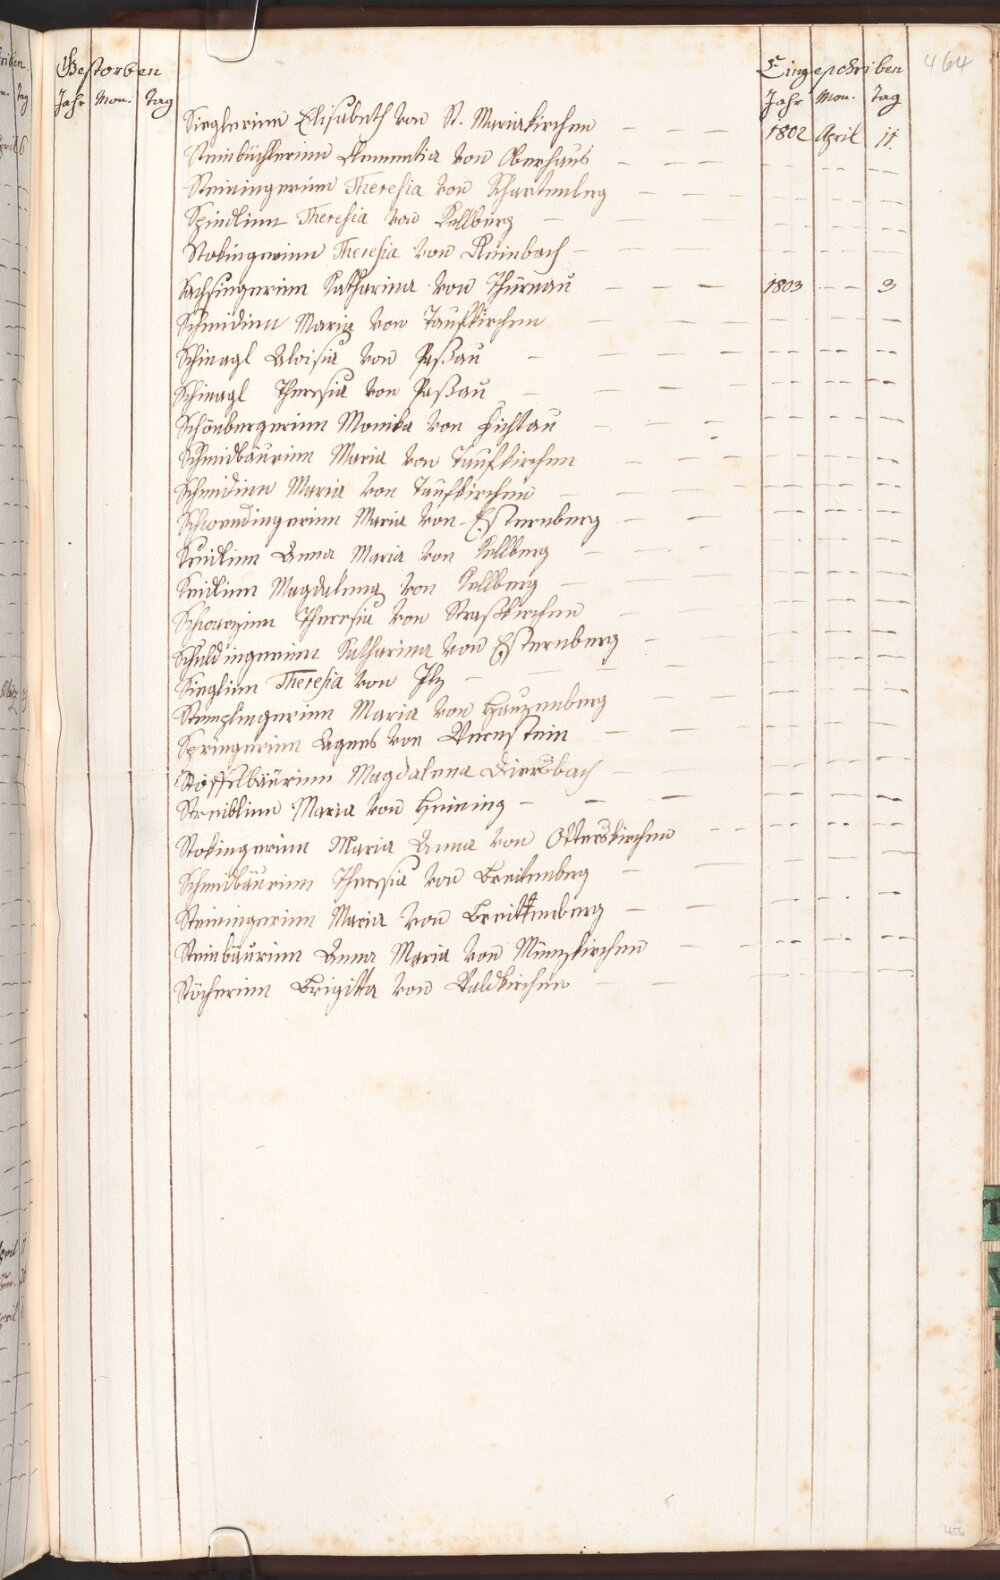 Gestorben
Jahr Mon. Tag
Eingeschriben
Jahr Mon. Tag
464
Sieglerinn Elisabeth von St. Mariakirchen — — — 1802 April 11.
Steinbüchlerinn Clementia von Oberhaus — — —
Steiningerinn Theresia von Schartenberg — — —
Spindlinn Theresia von Kellberg — — —
Stokingerinn Theresia von Reinbach — — —
Sachsingerinn Katharina von Thürnau — — — 1803 — — 3
Schmidinn Maria von Taufkirchen — — —
Schinagl Aloisia von Paßau — — —
Schinagl Theresia von Paßau — — —
Schönbergerinn Monika von Hichtau — — —
Schmidbäurinn Maria von Taufkirchen — — —
Schmidinn Maria von Taufkirchen — — —
Schwendingerinn Maria von Esternberg — — —
Seidlinn Anna Maria von Kellberg — — —
Seidlinn Magdalena von Kellberg — — —
Schwarzinn Theresia von Straßkirchen — — —
Schuldingerinn Katharina von Esternberg — — —
Sieglinn Theresia von Ilz — — —
Stemplingerinn Maria von Hauzenberg — — —
Springerinn Agnes von Wernstein — — —
Stöffelbäurinn Magdalena Diersbach — — —
Streiblinn Maria von Heining — — —
Stokingerinn Maria Anna von Otterskirchen — —
Schmidbäurinn Theresia von Breitenberg — —
Steiningerinn Maria von Breittenberg — — —
Steinbäurinn Anna Maria von Münzkirchen — — —
Stöcherinn Brigitta von Waldkirchen — —